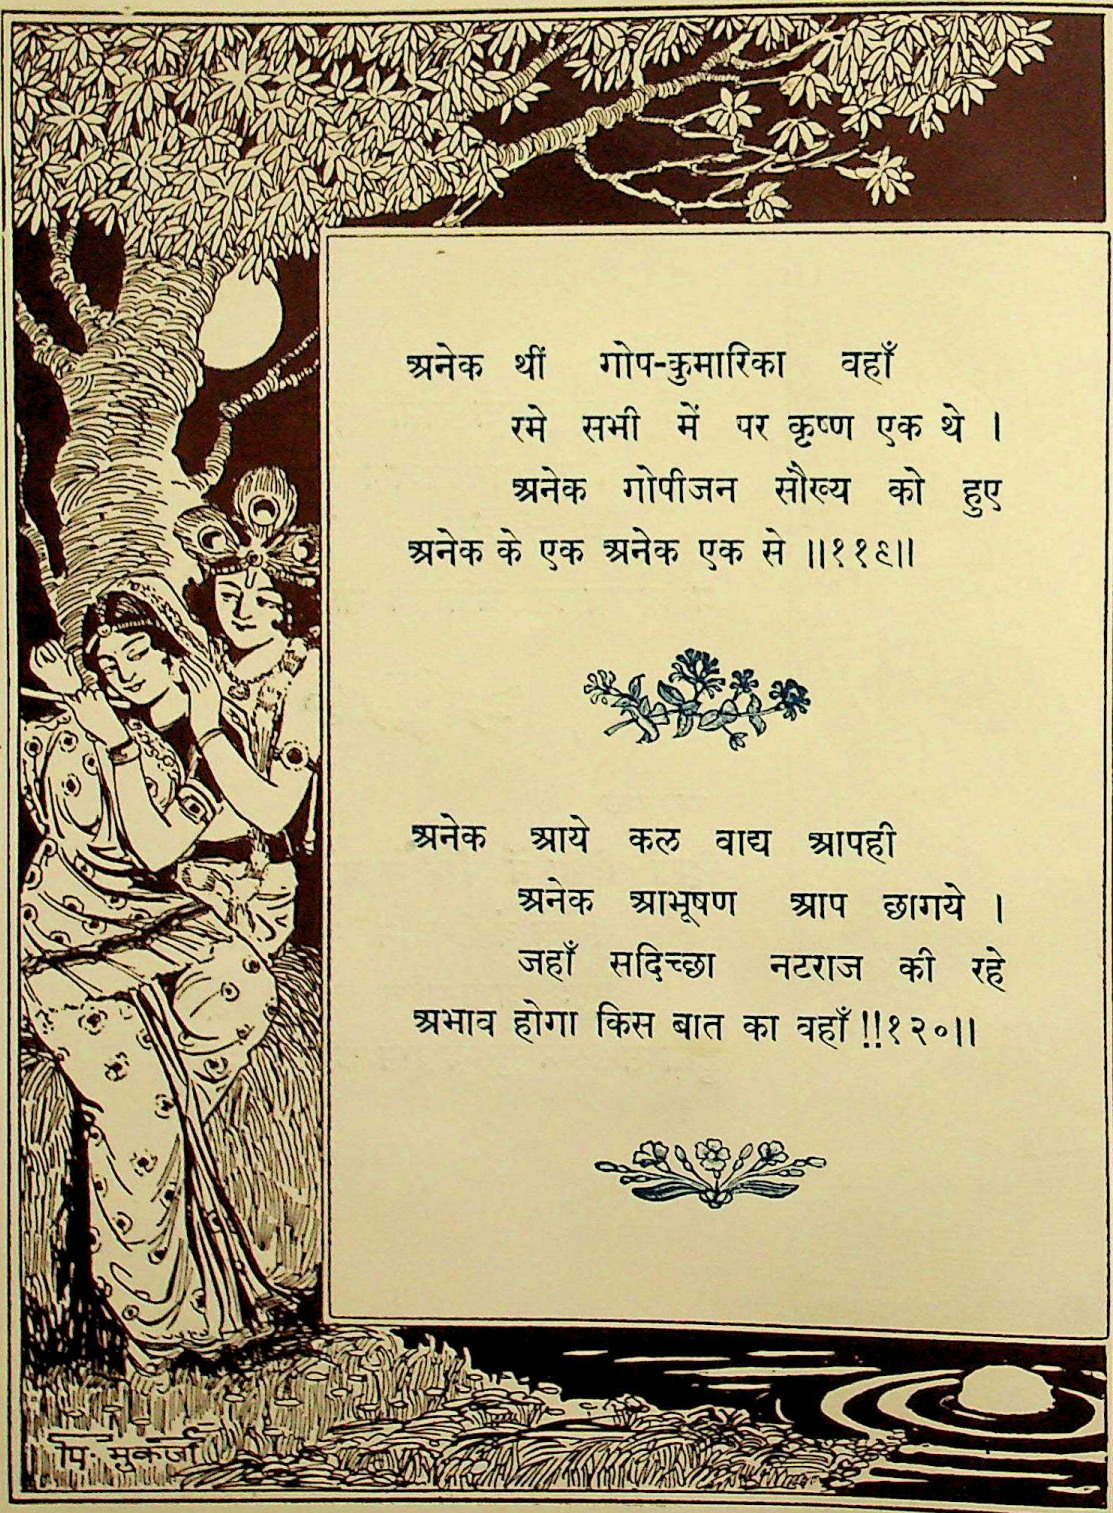 अनेक थीं गोप-कुमारिका वहाँ
रमे सभी में पर कृष्ण एक थे ।
अनेक गोपीजन सौख्य को हुए
अनेक के एक अनेक एक से ॥११९॥
अनेक आये कल वाद्य आपही
अनेक आभूषण आप छागये ।
जहाँ सदिच्छा नटराज की रहे
अभाव होगा किस बात का वहाँ !!१२०॥
पि. मुकर्जी